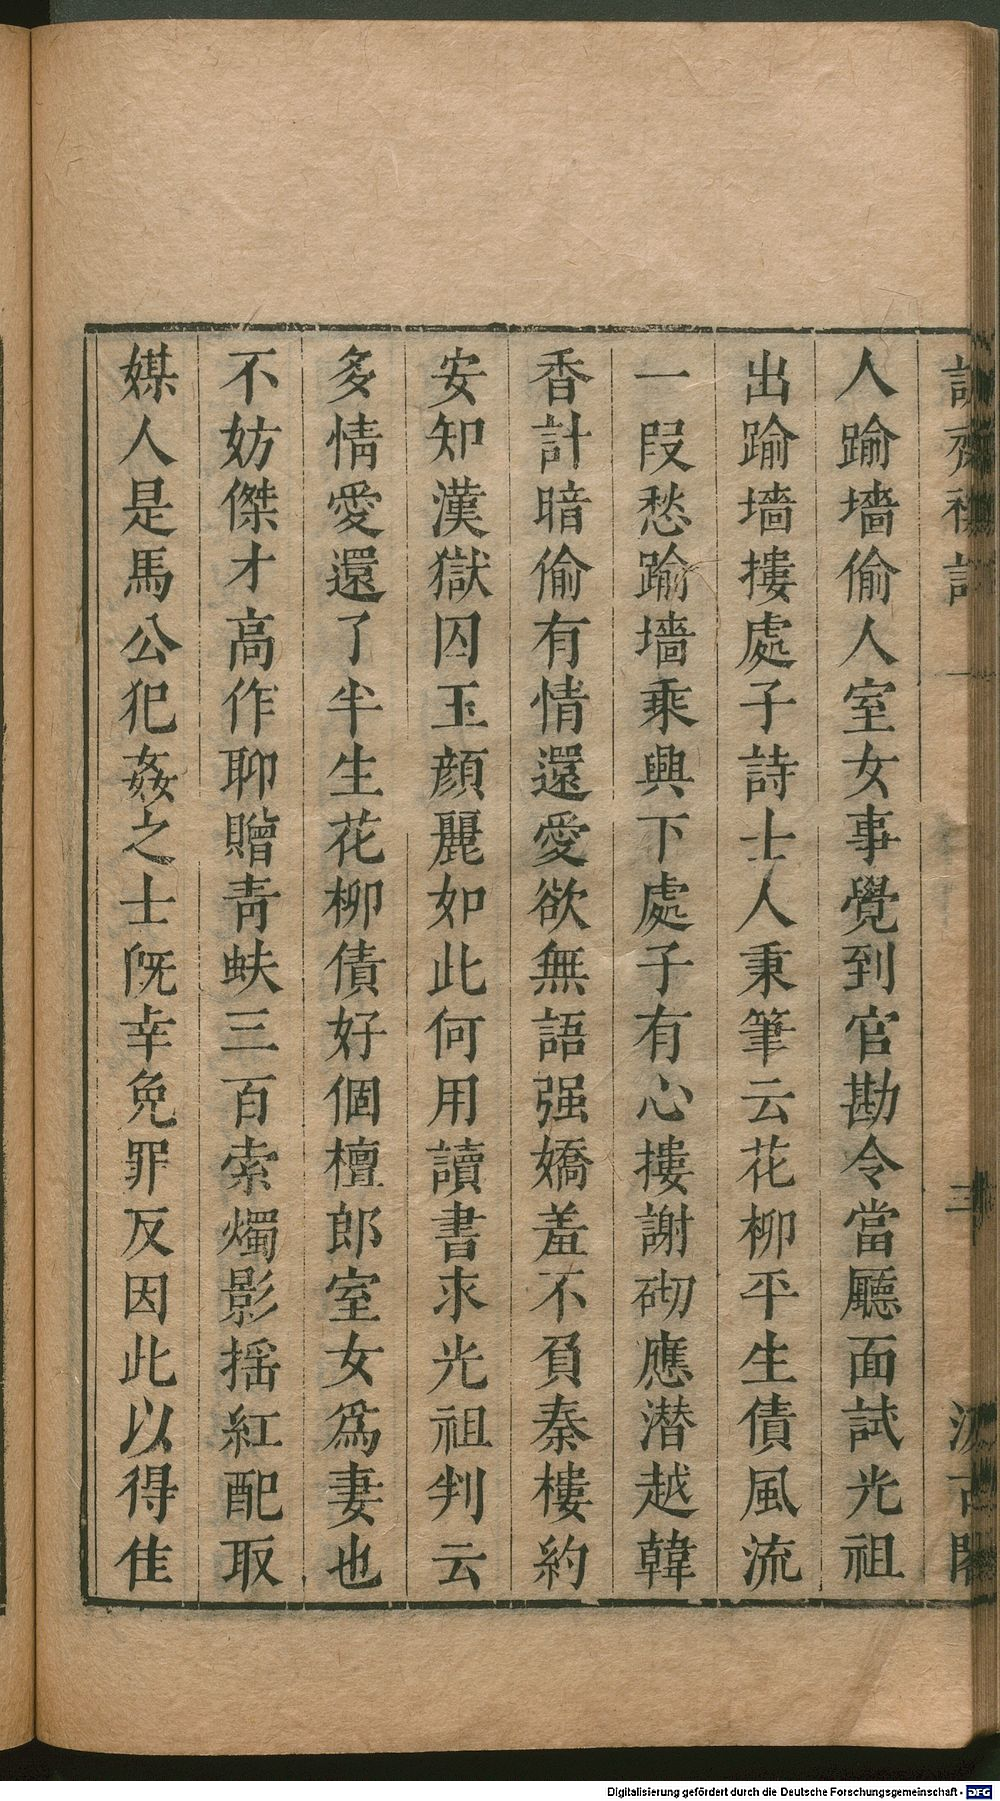 人踰墻偷人室女事覺到官勘令當廳面試光祖
出踰墻摟處子詩士人秉筆云花柳平生債風流
一段愁踰墻乘興下處子有心摟謝砌應潜越韓
香計暗偷有情還愛欲無語强嬌羞不負秦樓約
安知漢獄囚玉顔麗如此何用讀書求光祖判云
多情愛還了半生花柳債好個檀郎室女爲妻也
不妨傑才高作聊贈青蚨三百索燭影揺紅配取
媒人是馬公犯姦之士旣幸免罪反因此以得佳
三
Digitalisierung gefördert durch die Deutsche Forschungsgemeinschaft - DFG